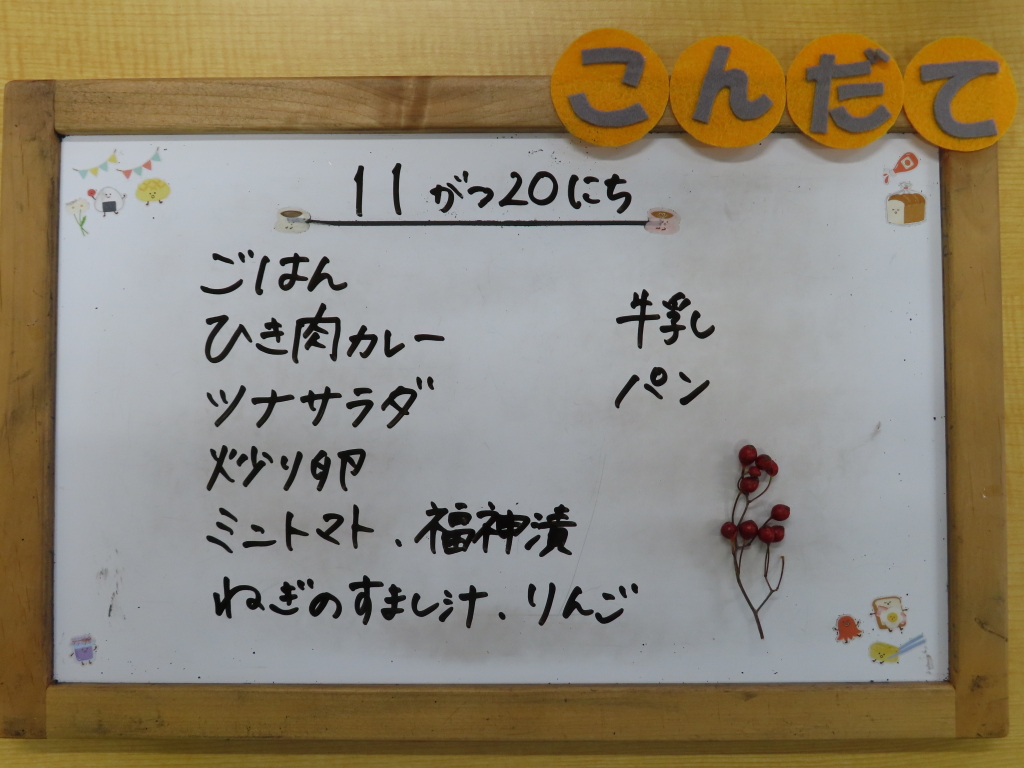 こんだて
11がつ20にち
ごはん
ひき肉カレー
ツナサラダ
炒り卵
ミニトマト、福神漬
ねぎのすまし汁、りんご
牛乳
パン